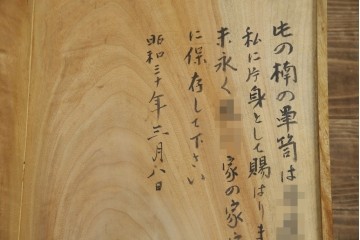 此の楠の箪笥は
私に片身として賜はりま
末永く 家の家
に保存して下さい
昭和三十年三月八日